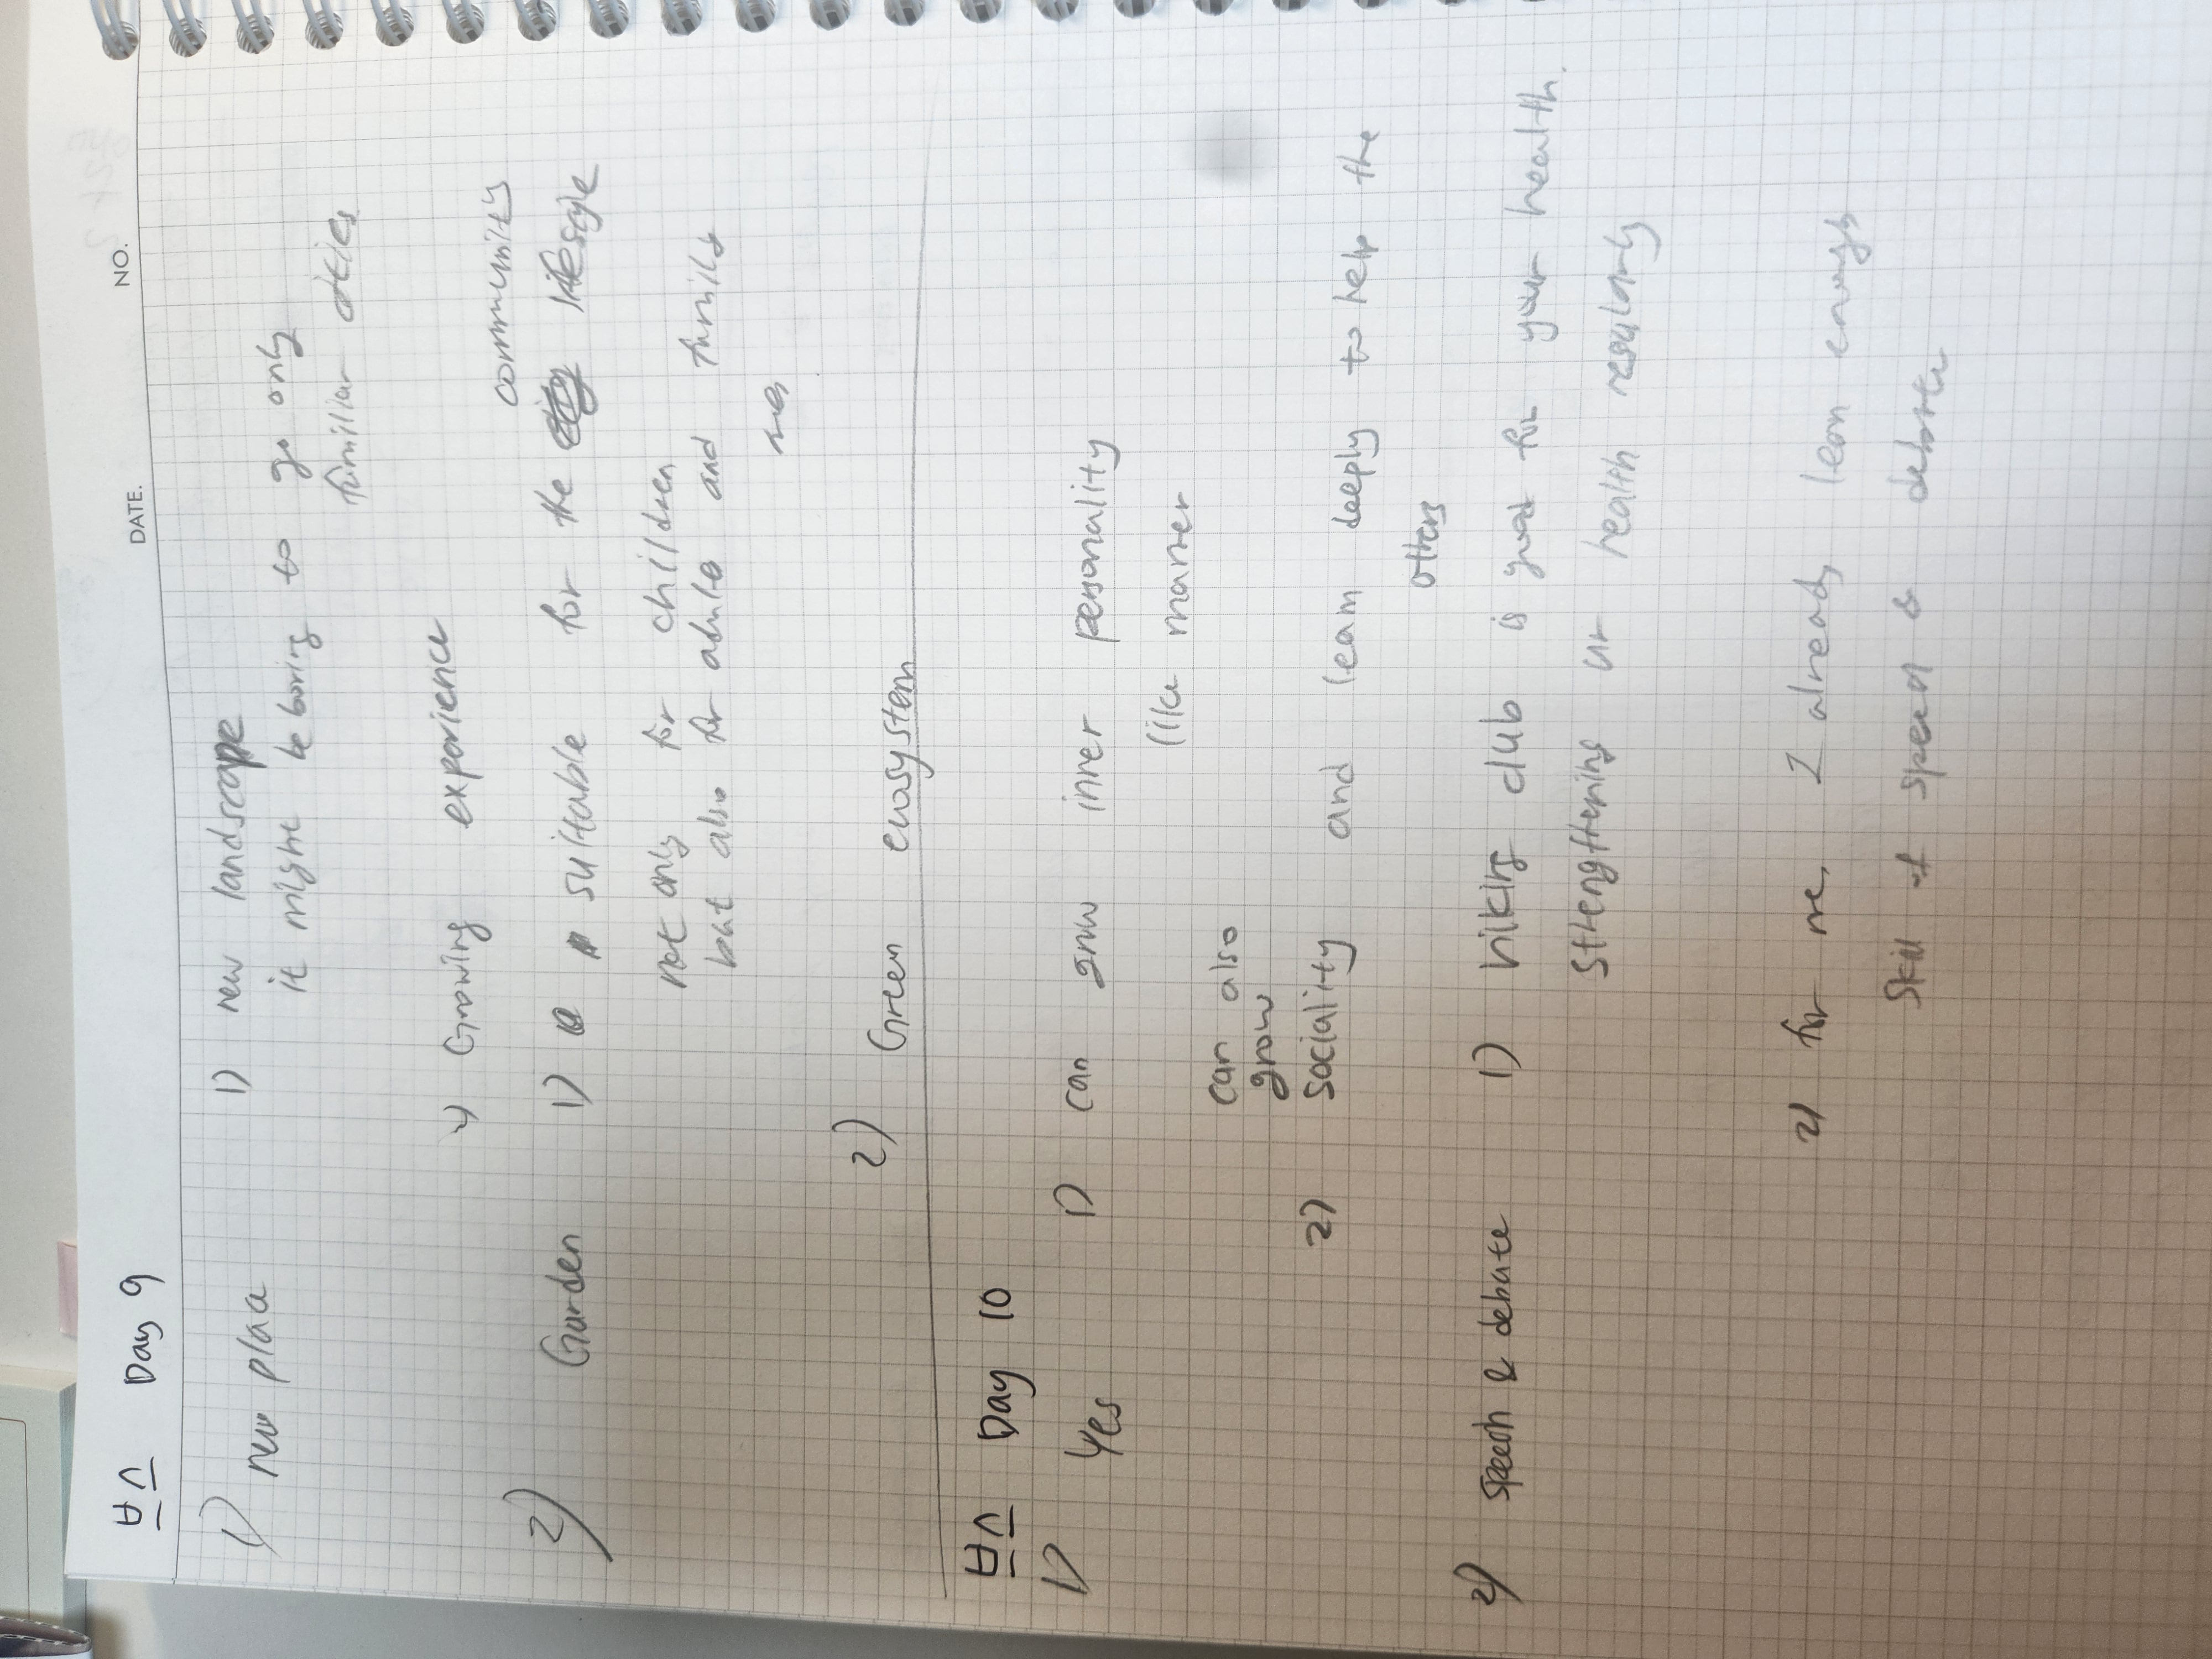 브스 Day 9
DATE. NO.
1) new place 1) new landscape
it might be boring to go only
familiar cities
2) Growing experience
community
2) Garden 1) suitable for the lifestyle
not only for children
but also for adults and
2) Green ecosystem
브스 Day 10
1) Yes 1) can grow inner personality
like manner
can also
grow
2) sociality and learn deeply to help the
others
2) speech & debate 1) hiking club is good for your health.
sthrengthening ur health regularly
2) for me, I already learn enough
skill of speech & debate